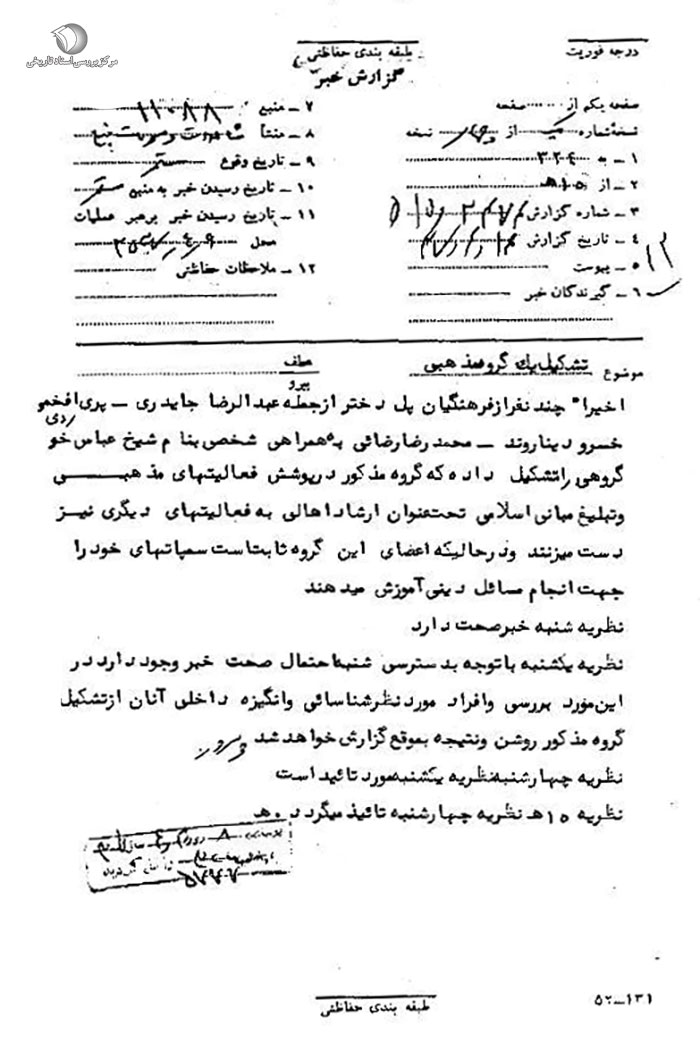 مرکز بررسی اسناد تاریخی
درجه فوریت
طبقه بندی حفاظتی
گزارش خبر
صفحه یکم از صفحه
نسخه شماره یک از چهار نسخه
۱ـ به ۳۲٤
۲ـ از ۱۵ه
۳ـ شماره گزارش
٤ـ تاریخ گزارش
۵ـ پیوست
٦ـ گیرندگان خبر
۷ـ منبع ۱۱۰۸۸
۸ـ منشأ
۹ـ تاریخ وقوع مستمر
۱۰ـ تاریخ رسیدن خبر به منبع مستمر
۱۱ـ تاریخ رسیدن خبر برهبر عملیات
محل
۱۲ـ ملاحظات حفاظتی
موضوع تشکیل یك گروه مذهبی
عطف
پیرو
اخیرا" چند نفر از فرهنگیان پل دختر از جمله عبدالرضا جایدری ـ پری افخمو
ردی
خسرو دیناروند ـ محمدرضا رضائی به همراهی شخصی بنام شیخ عباس خو
گروهی را تشکیل داده که گروه مذکور در پوشش فعالیتهای مذهبی
وتبلیغ مبانی اسلامی تحت عنوان ارشاد اهالی به فعالیتهای دیگری نیز
دست میزنند ودر حالیکه اعضای این گروه ثابت است سمپاتهای خود را
جهت انجام مسائل دینی آموزش میدهند
نظریه شنبه خبر صحت دارد
نظریه یکشنبه با توجه بدسترسی شنبه احتمال صحت خبر وجود دارد در
این مورد بررسی وافراد مورد نظر شناسائی وانگیزه داخلی آنان از تشکیل
گروه مذکور روشن ونتیجه بموقع گزارش خواهد شد
نظریه چهارشنبه نظریه یکشنبه مورد تائید است
نظریه ۱۵ه نظریه چهارشنبه تائید میگردد ه
طبقه بندی حفاظتی
۱۳۱ـ۵۲